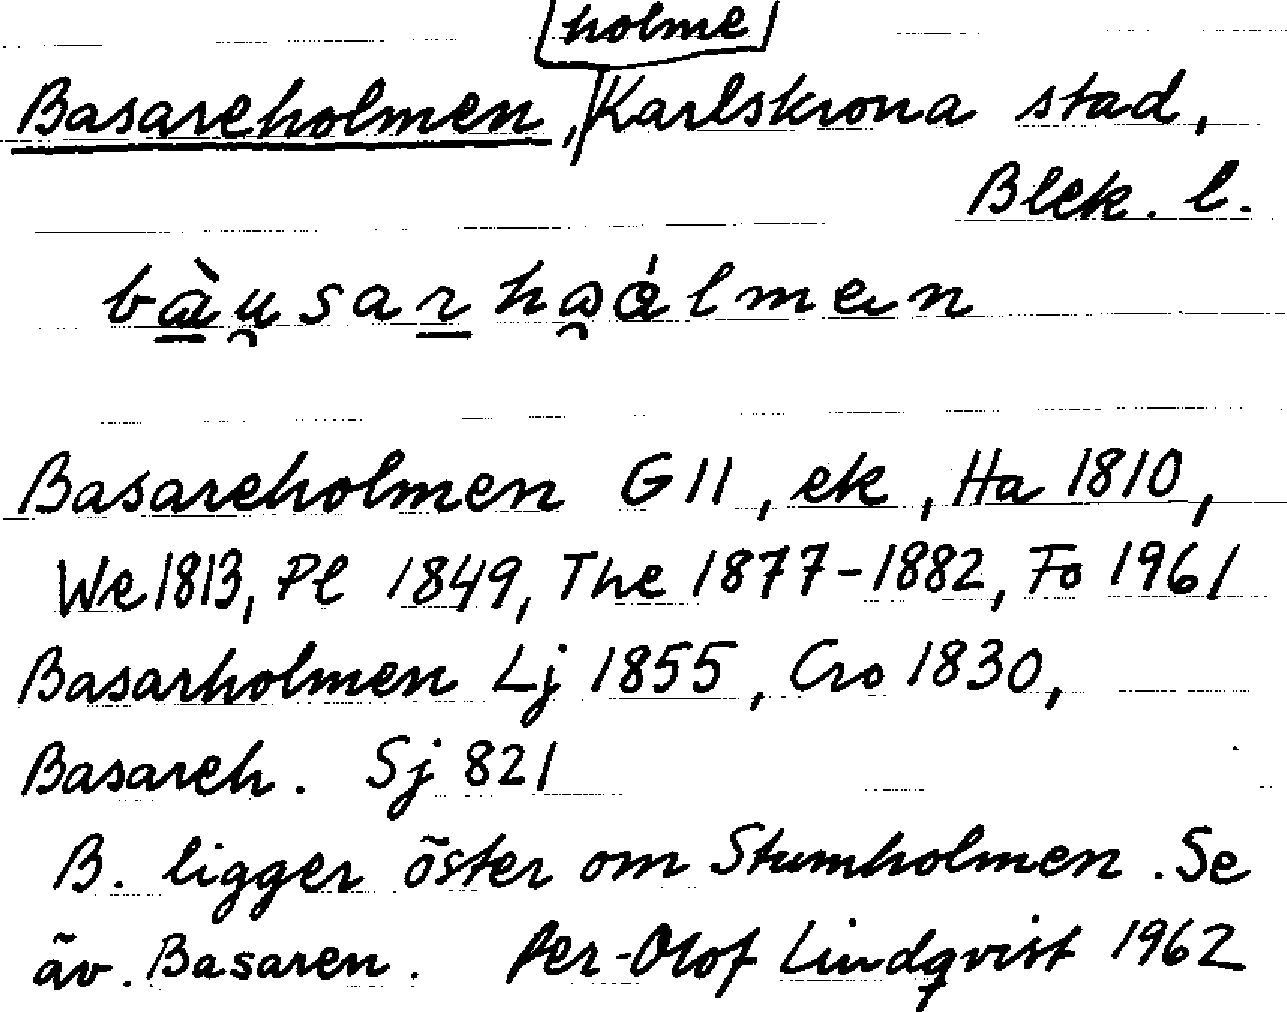 holme
Basareholmen, Karlskrona stad,
Blek. l.
Basareholmen G11, ek, Ha 1810,
We 1813, Pl 1849, The 1877-1882, Fo 1961
Basarholmen Lj 1855, Cro 1830,
Basareh. Sj 821
B. ligger öster om Stumholmen. Se
äv. Basaren. Per-Olof Lindqvist 1962